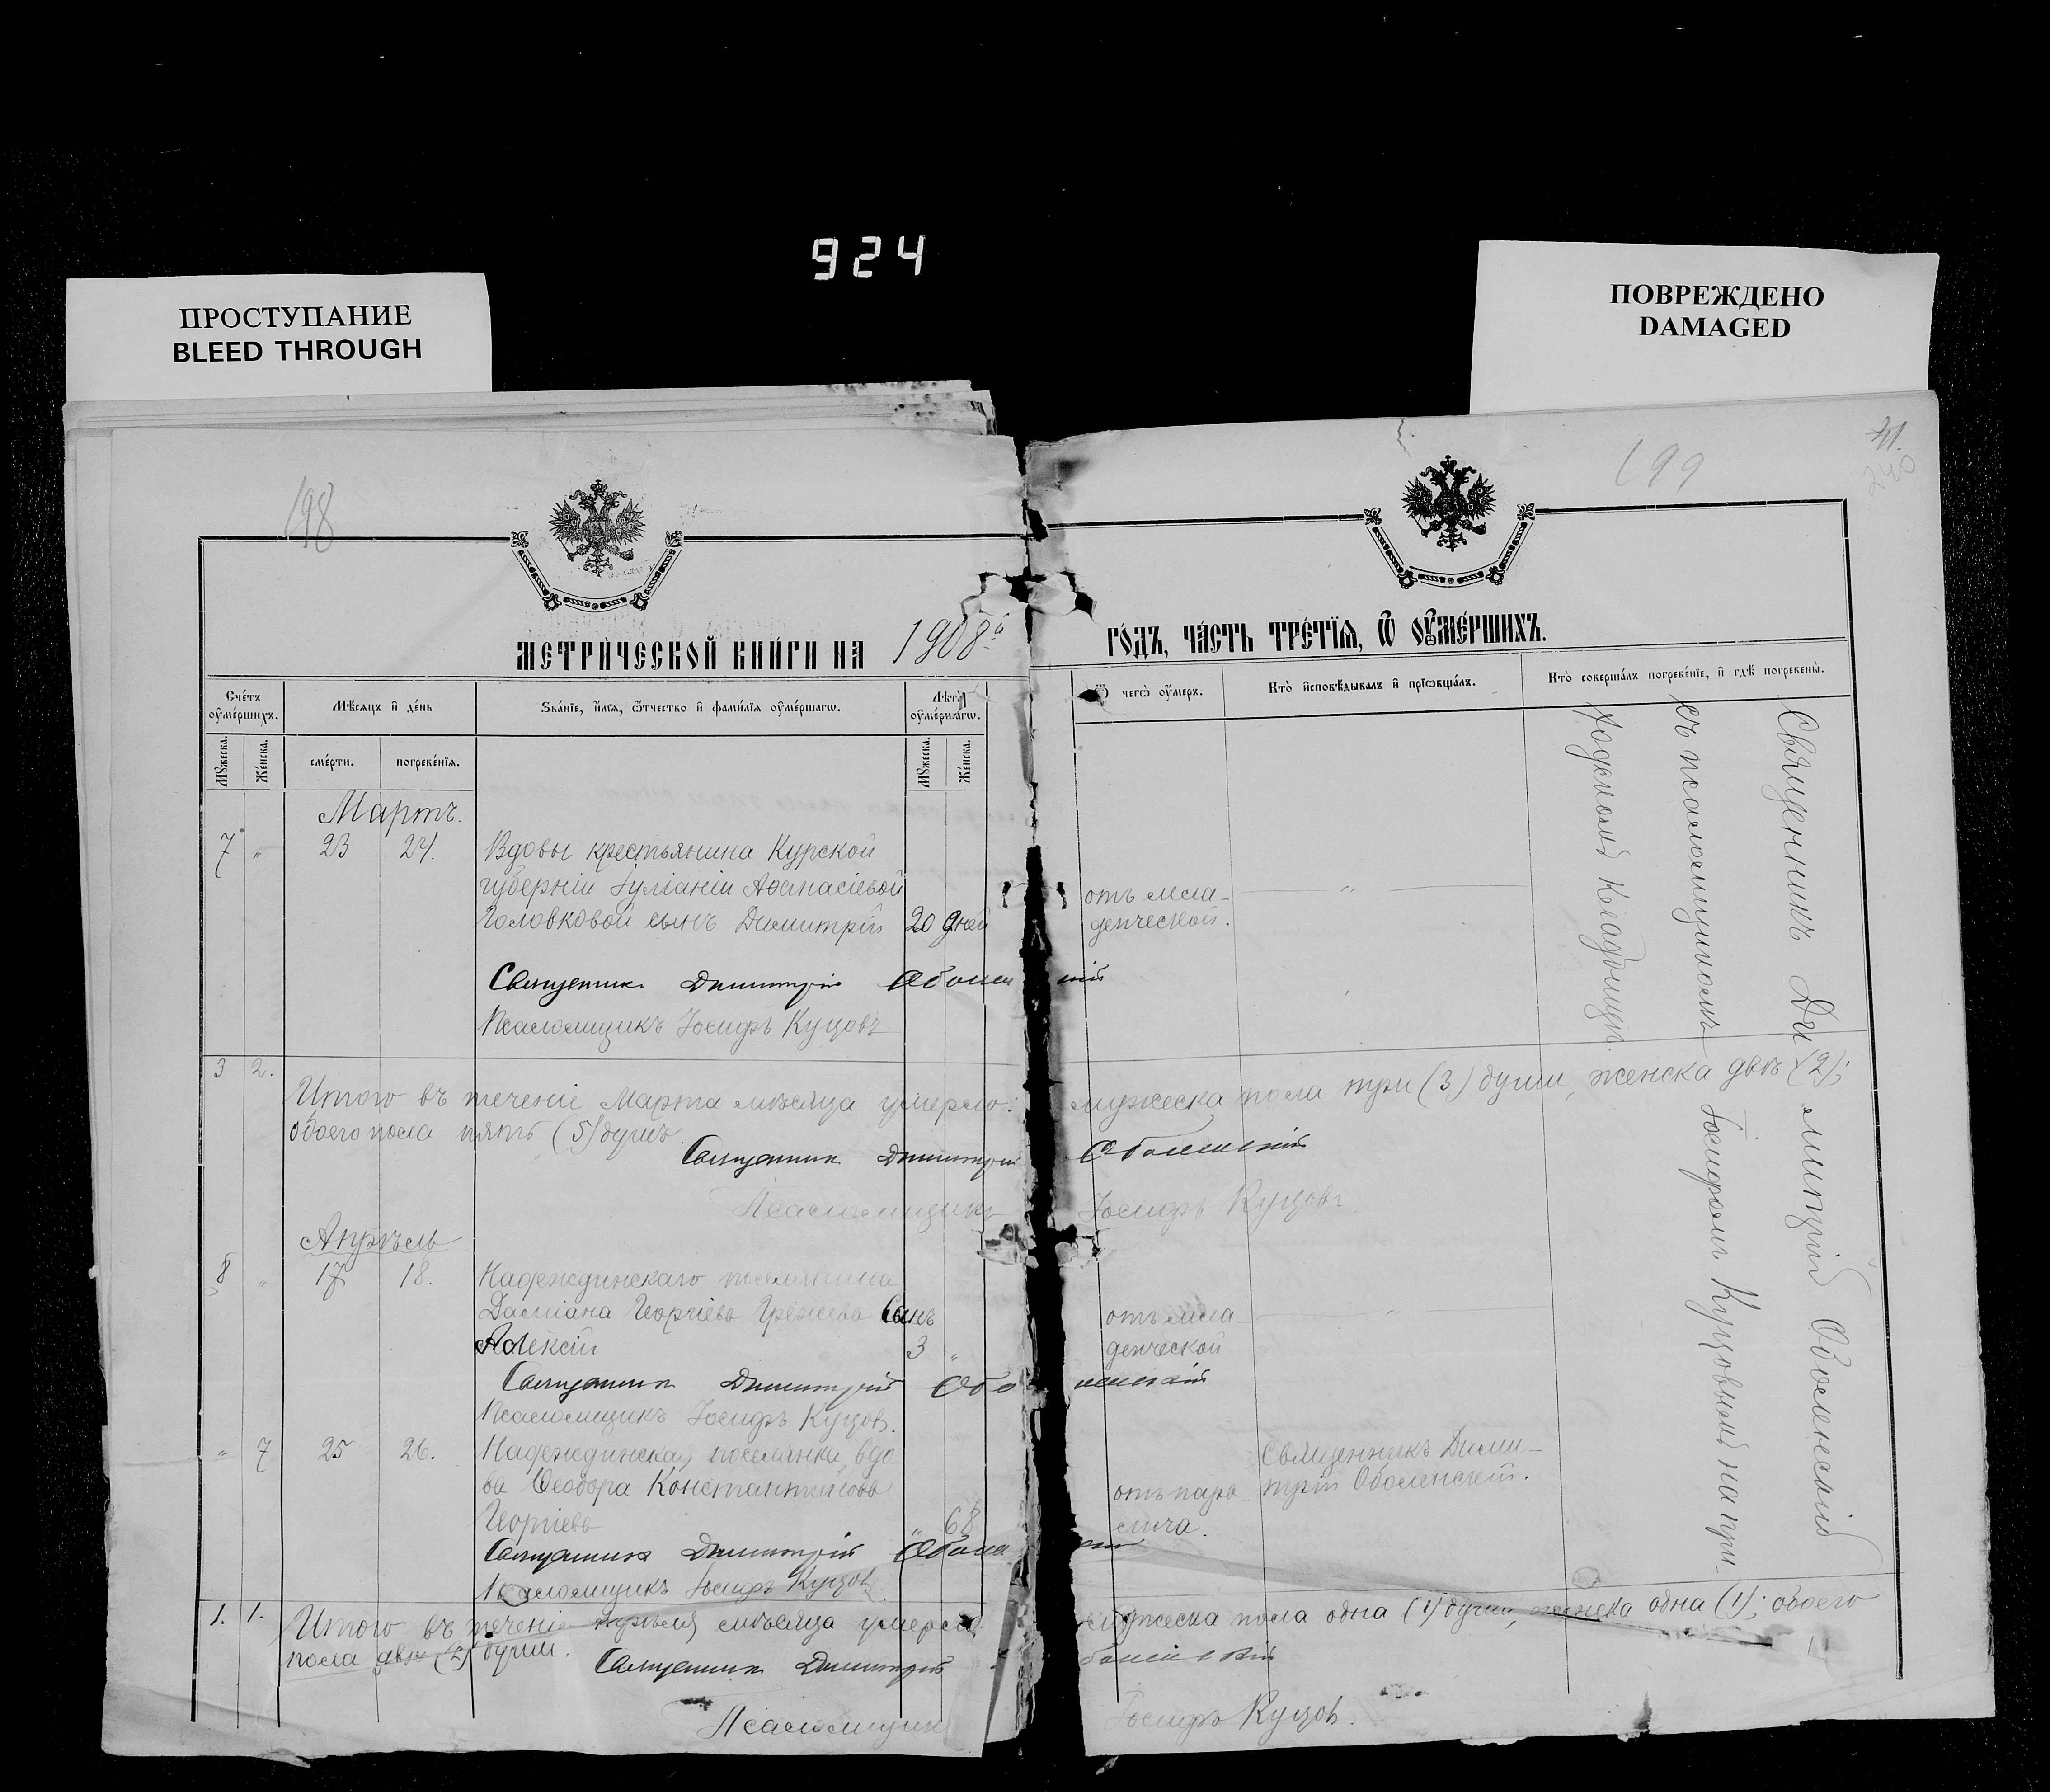 924
ПРОСТУПАНИЕ
BLEED THROUGH
ПОВРЕЖДЕНО
DAMAGED
198
199
41.
240
МЕТРИЧЕСКОЙ КНИГИ НА 1908й
ГОДЪ, ЧАСТЬ ТРЕТІЯ, Ѿ ОУМЕРШИХЪ.
Счетъ оумершихъ.
Мѣсяцъ и день
Званіе, имя, отчество и фамилія оумершагѡ.
Лѣта оумершагѡ.
Ѿ чегѡ оумеръ.
Кто исповѣдывалъ и пріобщалъ.
Кто совершалъ погребеніе, и гдѣ погребены.
Мужеска.
Женска.
смерти.
погребенія.
Мужеска.
Женска.
Мартъ.
7 " 23 24. Вдовы крестьянина Курской
губерніи Іуліаніи Аѳанасіевой отъ мла-
Головковой сынъ Димитрій 20 дней денческой.
Священникъ Димитрій Оболенскій
Псаломщикъ Іосифъ Куцовъ
3 2.
Итого въ теченіе Марта мѣсяца умерло: мужеска пола три (3) души, женска двѣ (2);
обоего пола пять (5) душъ.
Священникъ Димитрій Оболенскій
Псаломщикъ Іосифъ Куцовъ
Апрѣль
8 " 17 18. Надеждинскаго поселянина
Даміана Георгіева сынъ отъ мла-
Алексій 3 " денческой
Священникъ Димитрій Оболенскій
Псаломщикъ Іосифъ Куцов.
" 7 25 26. Надеждинская поселянка, вдо- Священникъ Дими-
ва Ѳеодора Константинова отъ пара- трій Оболенскій.
Георгіева " 68 лича.
Священникъ Димитрій Оболенскій
Псаломщикъ Іосифъ Куцов
1. 1. Итого въ теченіе Апрѣля мѣсяца умерло мужеска пола одна (1) душа, женска одна (1); обоего
пола двѣ (2) души.
Священникъ Димитрій Оболенскій
Псаломщикъ Іосифъ Куцов.
Священникъ Димитрій Оболенскій
съ псаломщикомъ Іосифомъ Куцовымъ на при-
ходскомъ кладбищѣ.